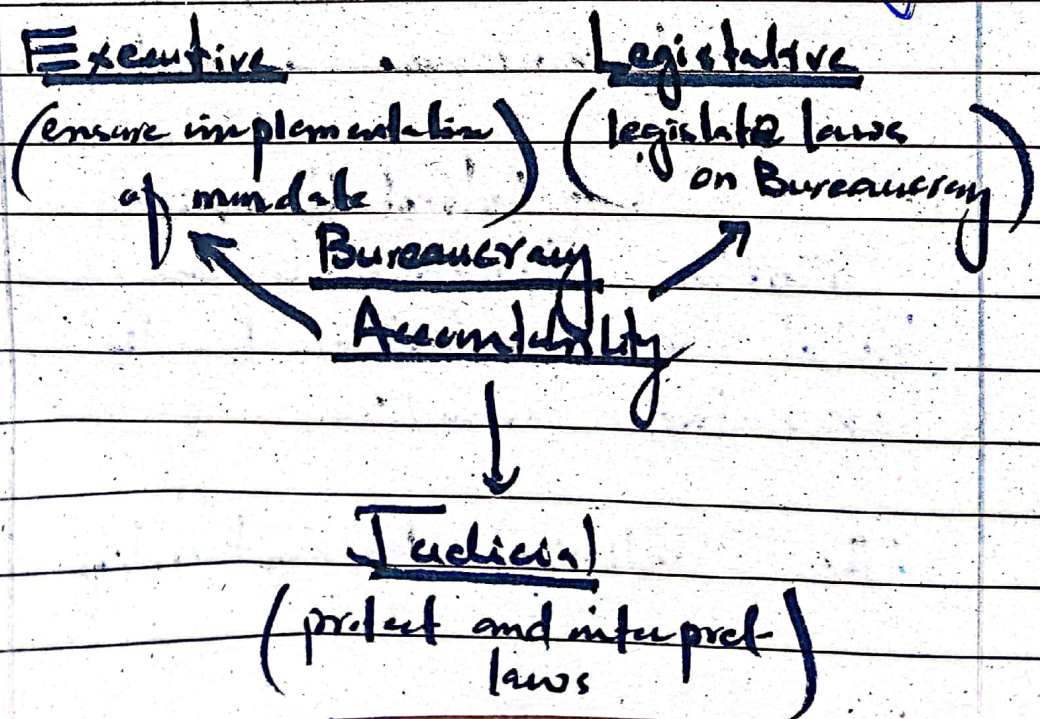 Executive
(ensure implementation
of mandate)
Legislative
(legislate laws
on Bureaucracy)
Bureaucracy
Accountability
Judicial
(protect and interpret
laws)